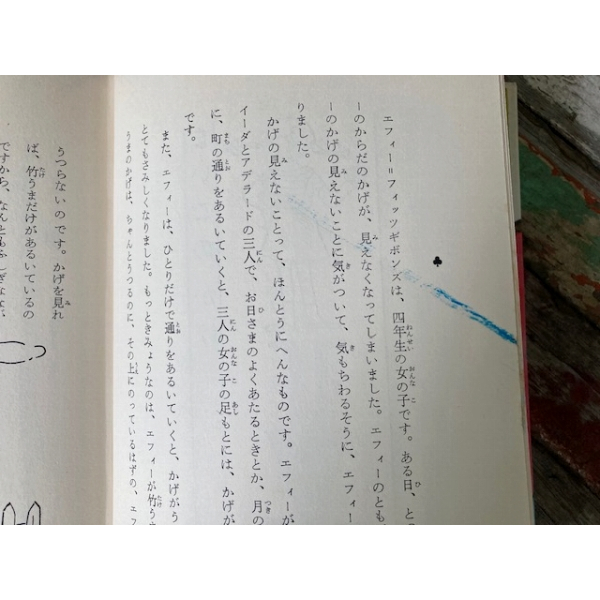 ♣
エフィー＝フィッツギボンズは、四年生の女の子です。ある日、と
ーのからだのかげが、見えなくなってしまいました。エフィーのとも
ーのかげの見えないことに気がついて、気もちわるそうに、エフィー
りました。
かげの見えないことって、ほんとうにへんなものです。エフィーが
イーダとアデラードの三人で、お日さまのよくあたるときとか、月の
に、町の通りをあるいていくと、三人の女の子の足もとには、かげが
です。
また、エフィーは、ひとりだけで通りをあるいていくと、かげがう
とてもさみしくなりました。もっときみょうなのは、エフィーが竹う
うまのかげは、ちゃんとうつるのに、その上にのっているはずの、エフ
うつらないのです。かげを見れ
ば、竹うまだけがあるいているの
ですから、なんともふしぎなな